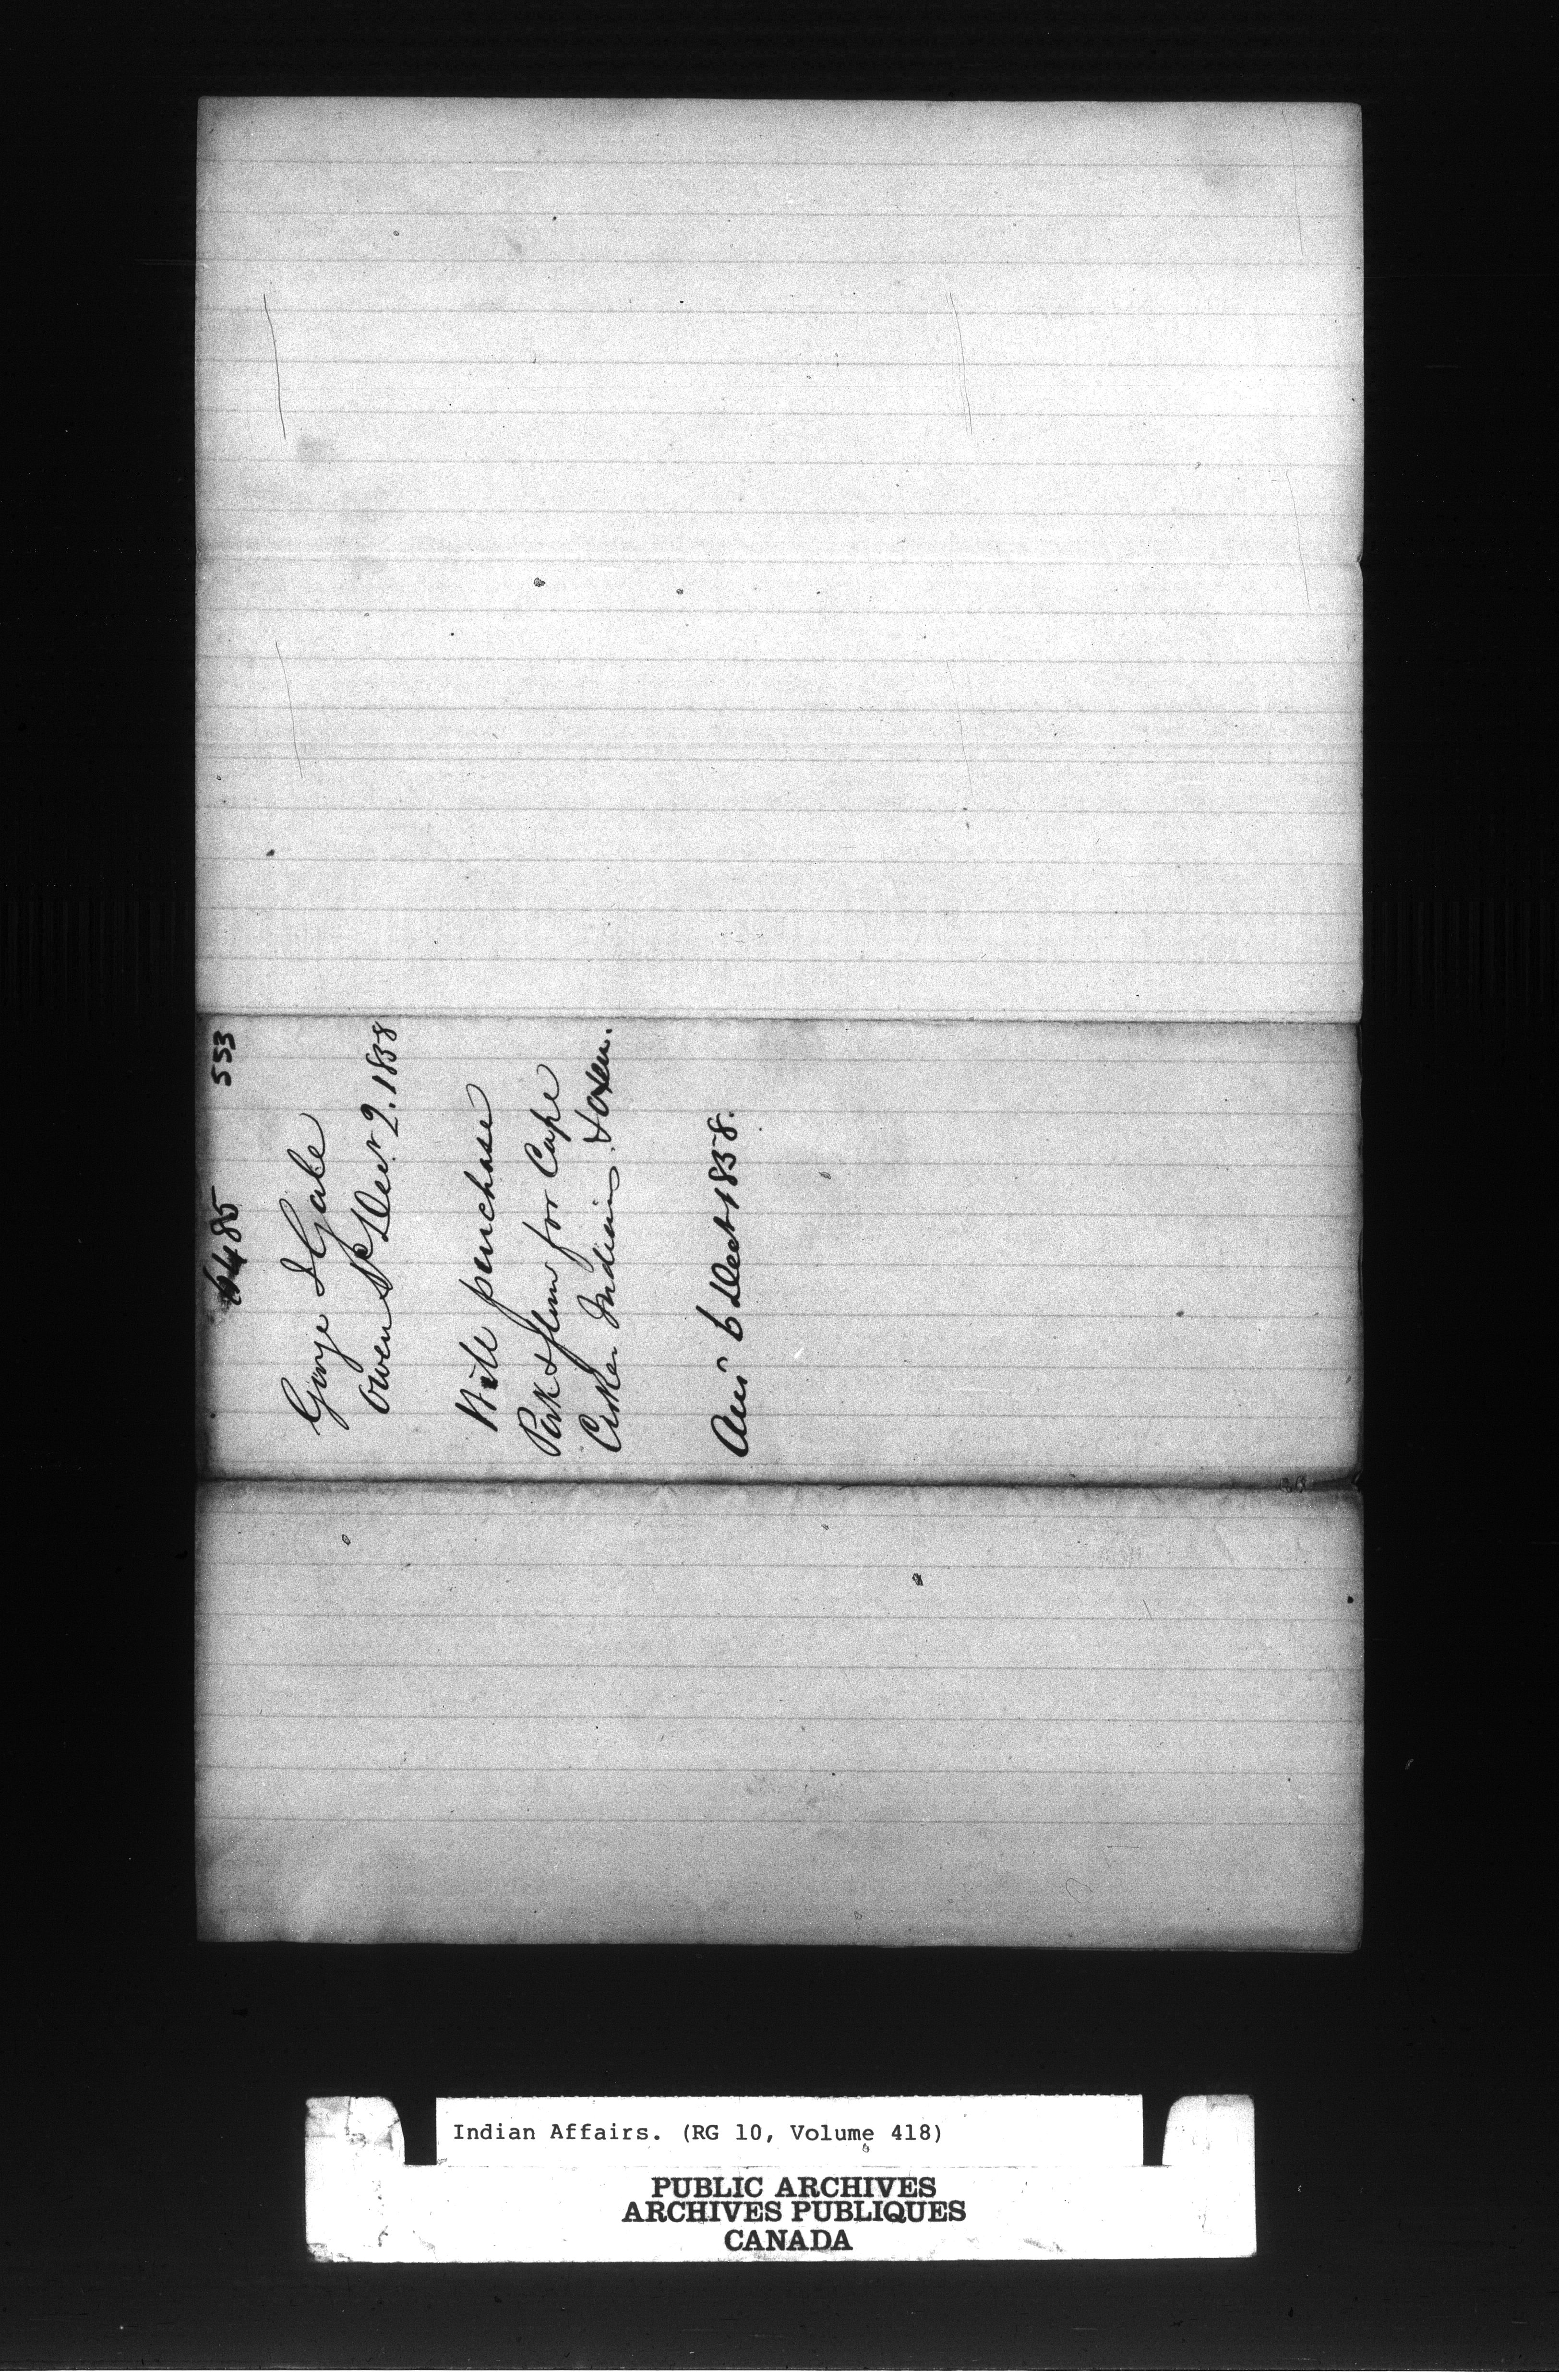 6485 553
George J Gale
Owen Sd Decr 2. 1858
Will purchase
Pork & flour for Cape
Croker Indians & oxen.
Ansd 6 Decr 1858.
Indian Affairs. (RG 10, Volume 418)
PUBLIC ARCHIVES
ARCHIVES PUBLIQUES
CANADA